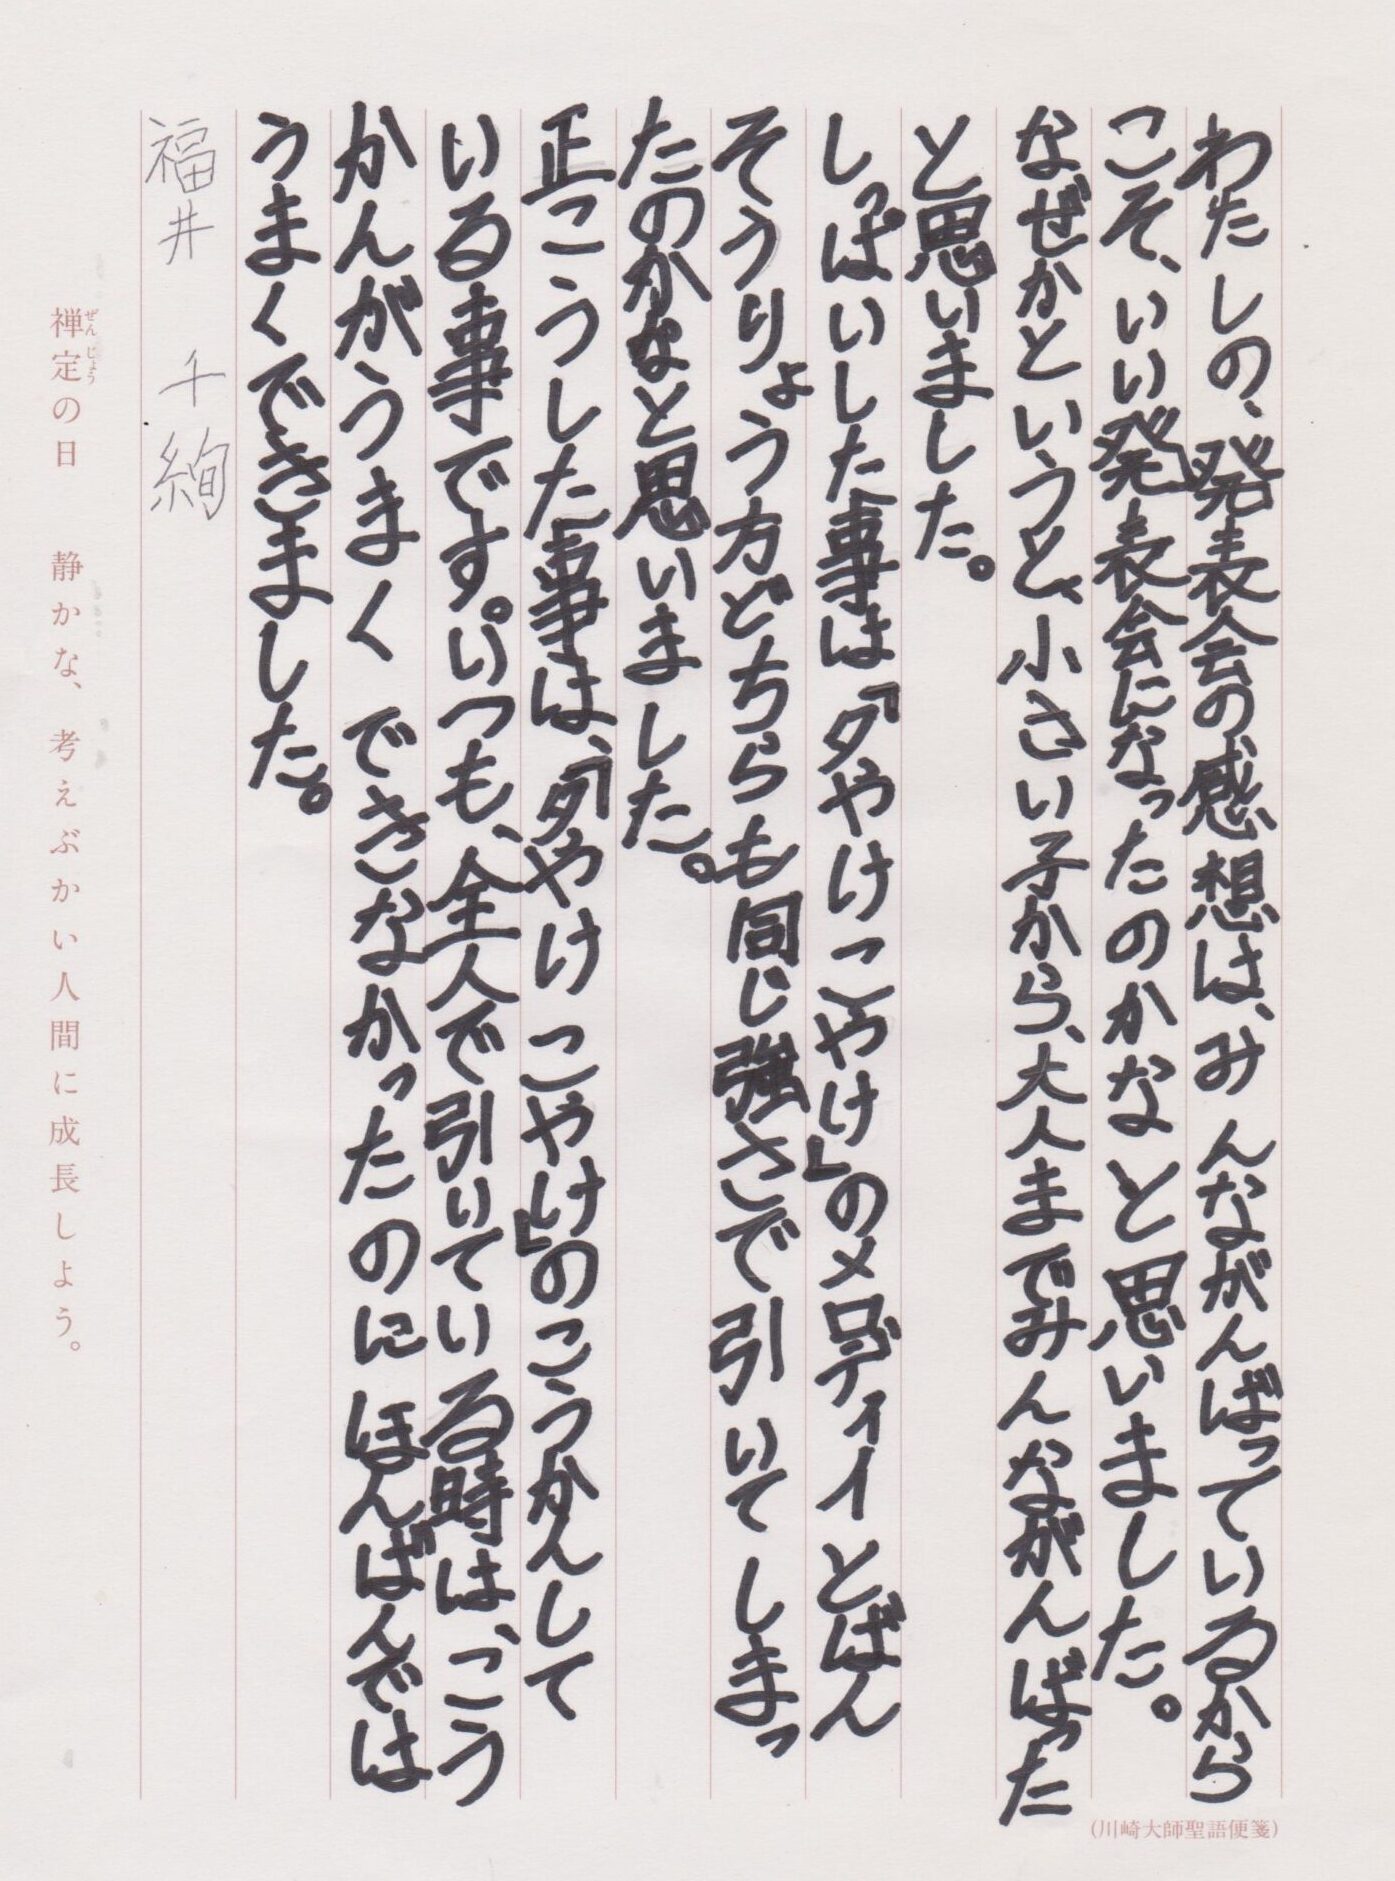 わたしの、発表会の感想は、みんながんばっているから
こそ、いい発表会になったのかなと思いました。
なぜかというと、小さい子から、大人までみんながんばった
と思いました。
しっぱいした事は「夕やけこやけ」のメロディイとばん
そうりょう方どちらも同じ強さで引いてしまっ
たのかなと思いました。
正こうした事は、「夕やけこやけ」のこうかんして
いる事です。いつも、全人で引いている時は、こう
かんがうまくできなかったのにほんばんでは
うまくできました。
福井 千絢
禅定の日 静かな、考えぶかい人間に成長しよう。
ぜんじょう
(川崎大師聖語便箋)